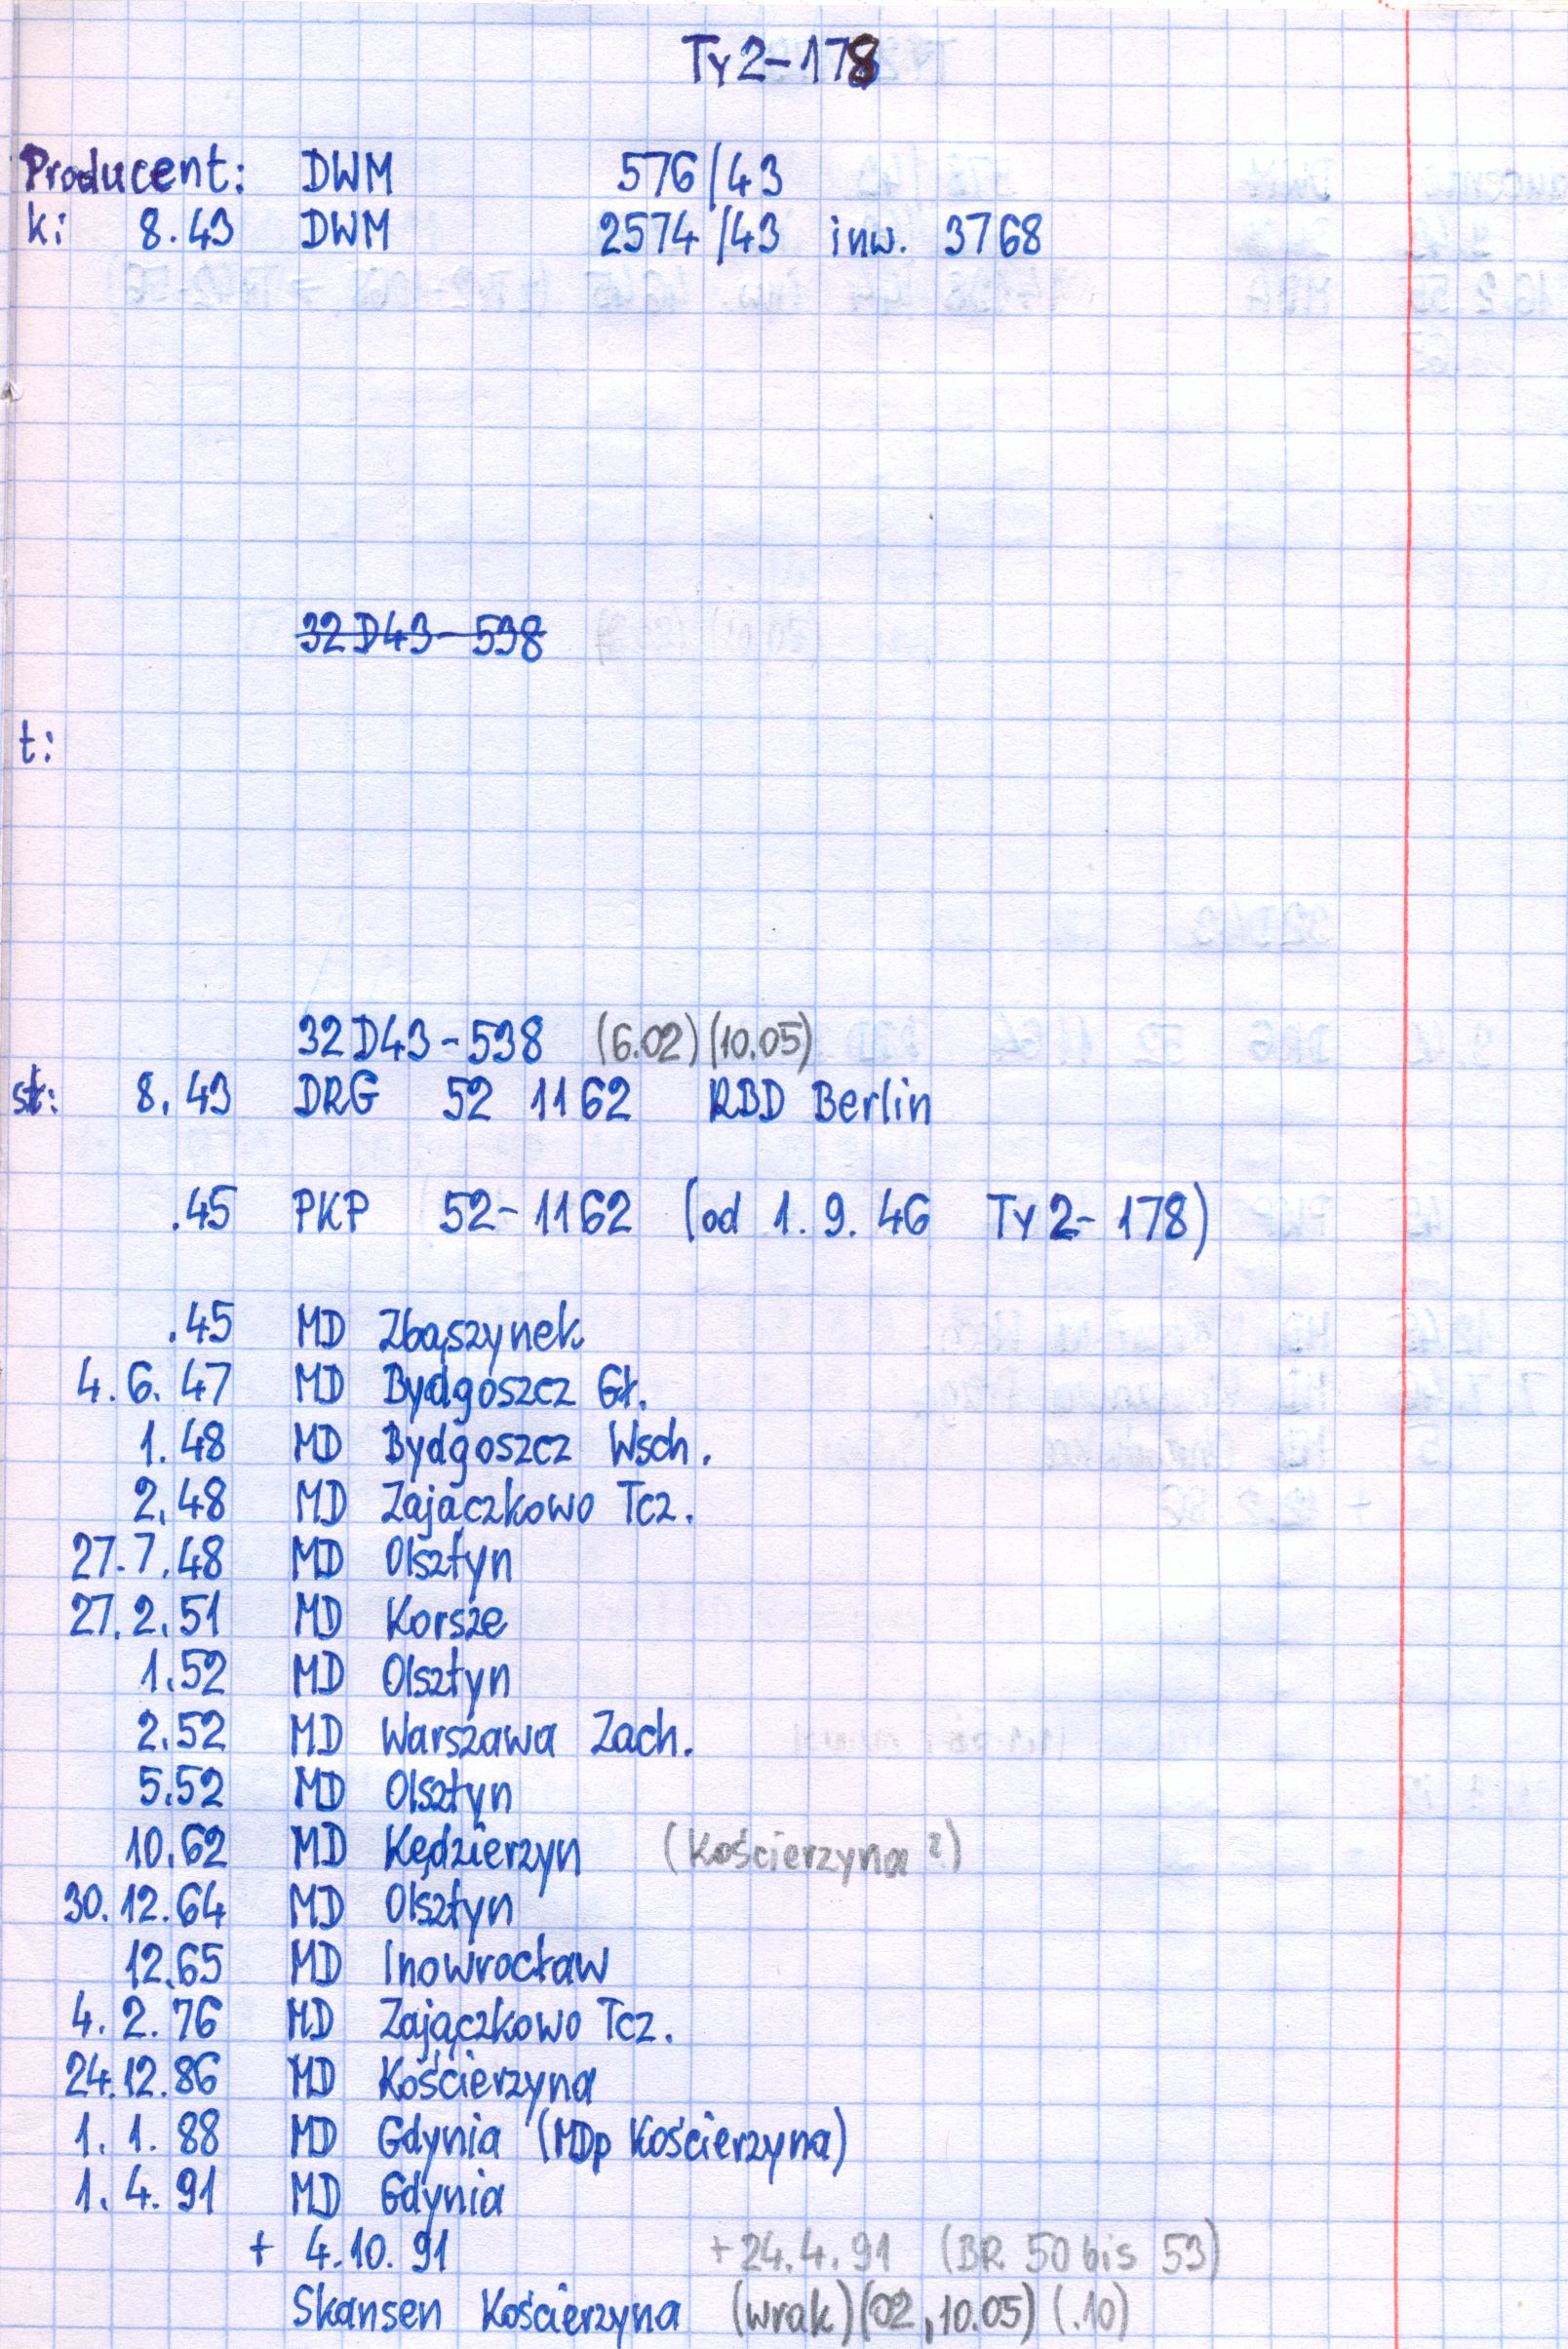 Ty2-178
Producent: DWM 576/43
k: 8.43 DWM 2574/43 inw. 3768
32D43-538
t:
32D43-538 (6.02) (10.05)
st: 8.43 DRG 52 1162 RBD Berlin
.45 PKP 52-1162 (od 1.9.46 Ty2-178)
.45 MD Zbąszynek
4.6.47 MD Bydgoszcz Gł.
1.48 MD Bydgoszcz Wsch.
2.48 MD Zajączkowo Tcz.
27.7.48 MD Olsztyn
27.2.51 MD Korsze
1.52 MD Olsztyn
2.52 MD Warszawa Zach.
5.52 MD Olsztyn
10.62 MD Kędzierzyn (Kościerzyna ?)
30.12.64 MD Olsztyn
12.65 MD Inowrocław
4.2.76 MD Zajączkowo Tcz.
24.12.86 MD Kościerzyna
1.1.88 MD Gdynia (MDp Kościerzyna)
1.4.91 MD Gdynia
+ 4.10.91 +24.4.91 (BR 50 bis 53)
Skansen Kościerzyna (wrak) (02, 10.05) (.10)